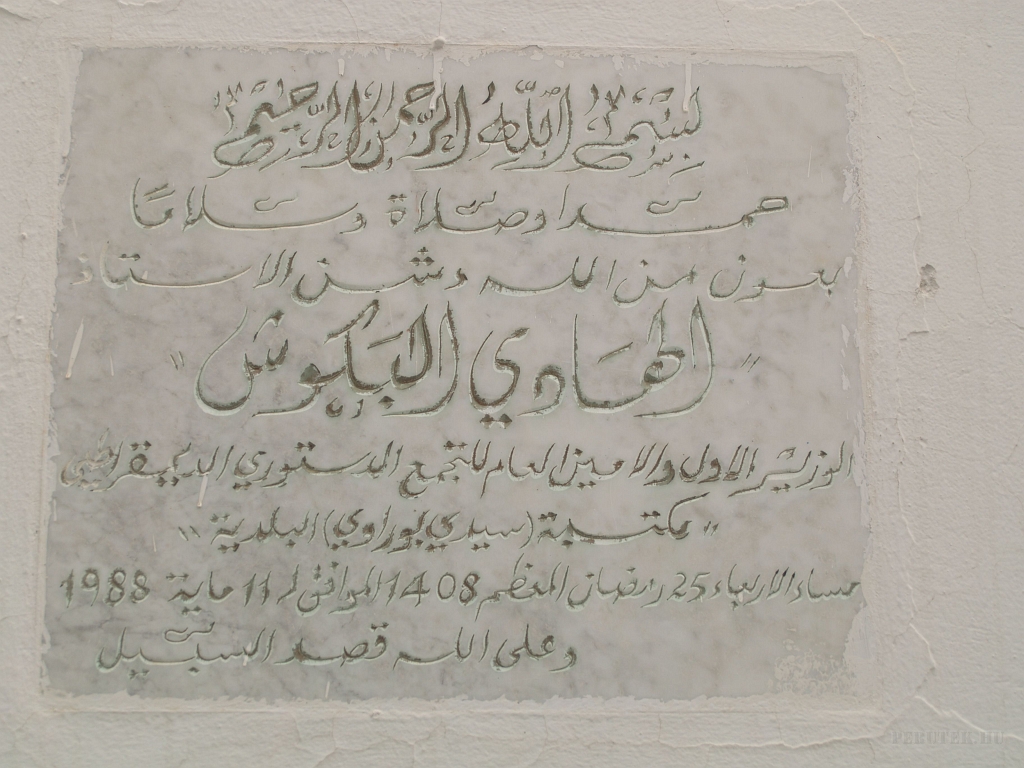 بسم الله الرحمن الرحيم
حمدا وصلاة وسلاما
بعون من الله دشن الاستاذ
"الهادي البكوش"
الوزير الاول والامين العام للتجمع الدستوري الديمقراطي
"مكتبة (سيدي بوراوي) البلدية"
مساء الاربعاء 25 رمضان المعظم 1408 الموافق لـ 11 ماية 1988
وعلى الله قصد السبيل
PEROTER.HU